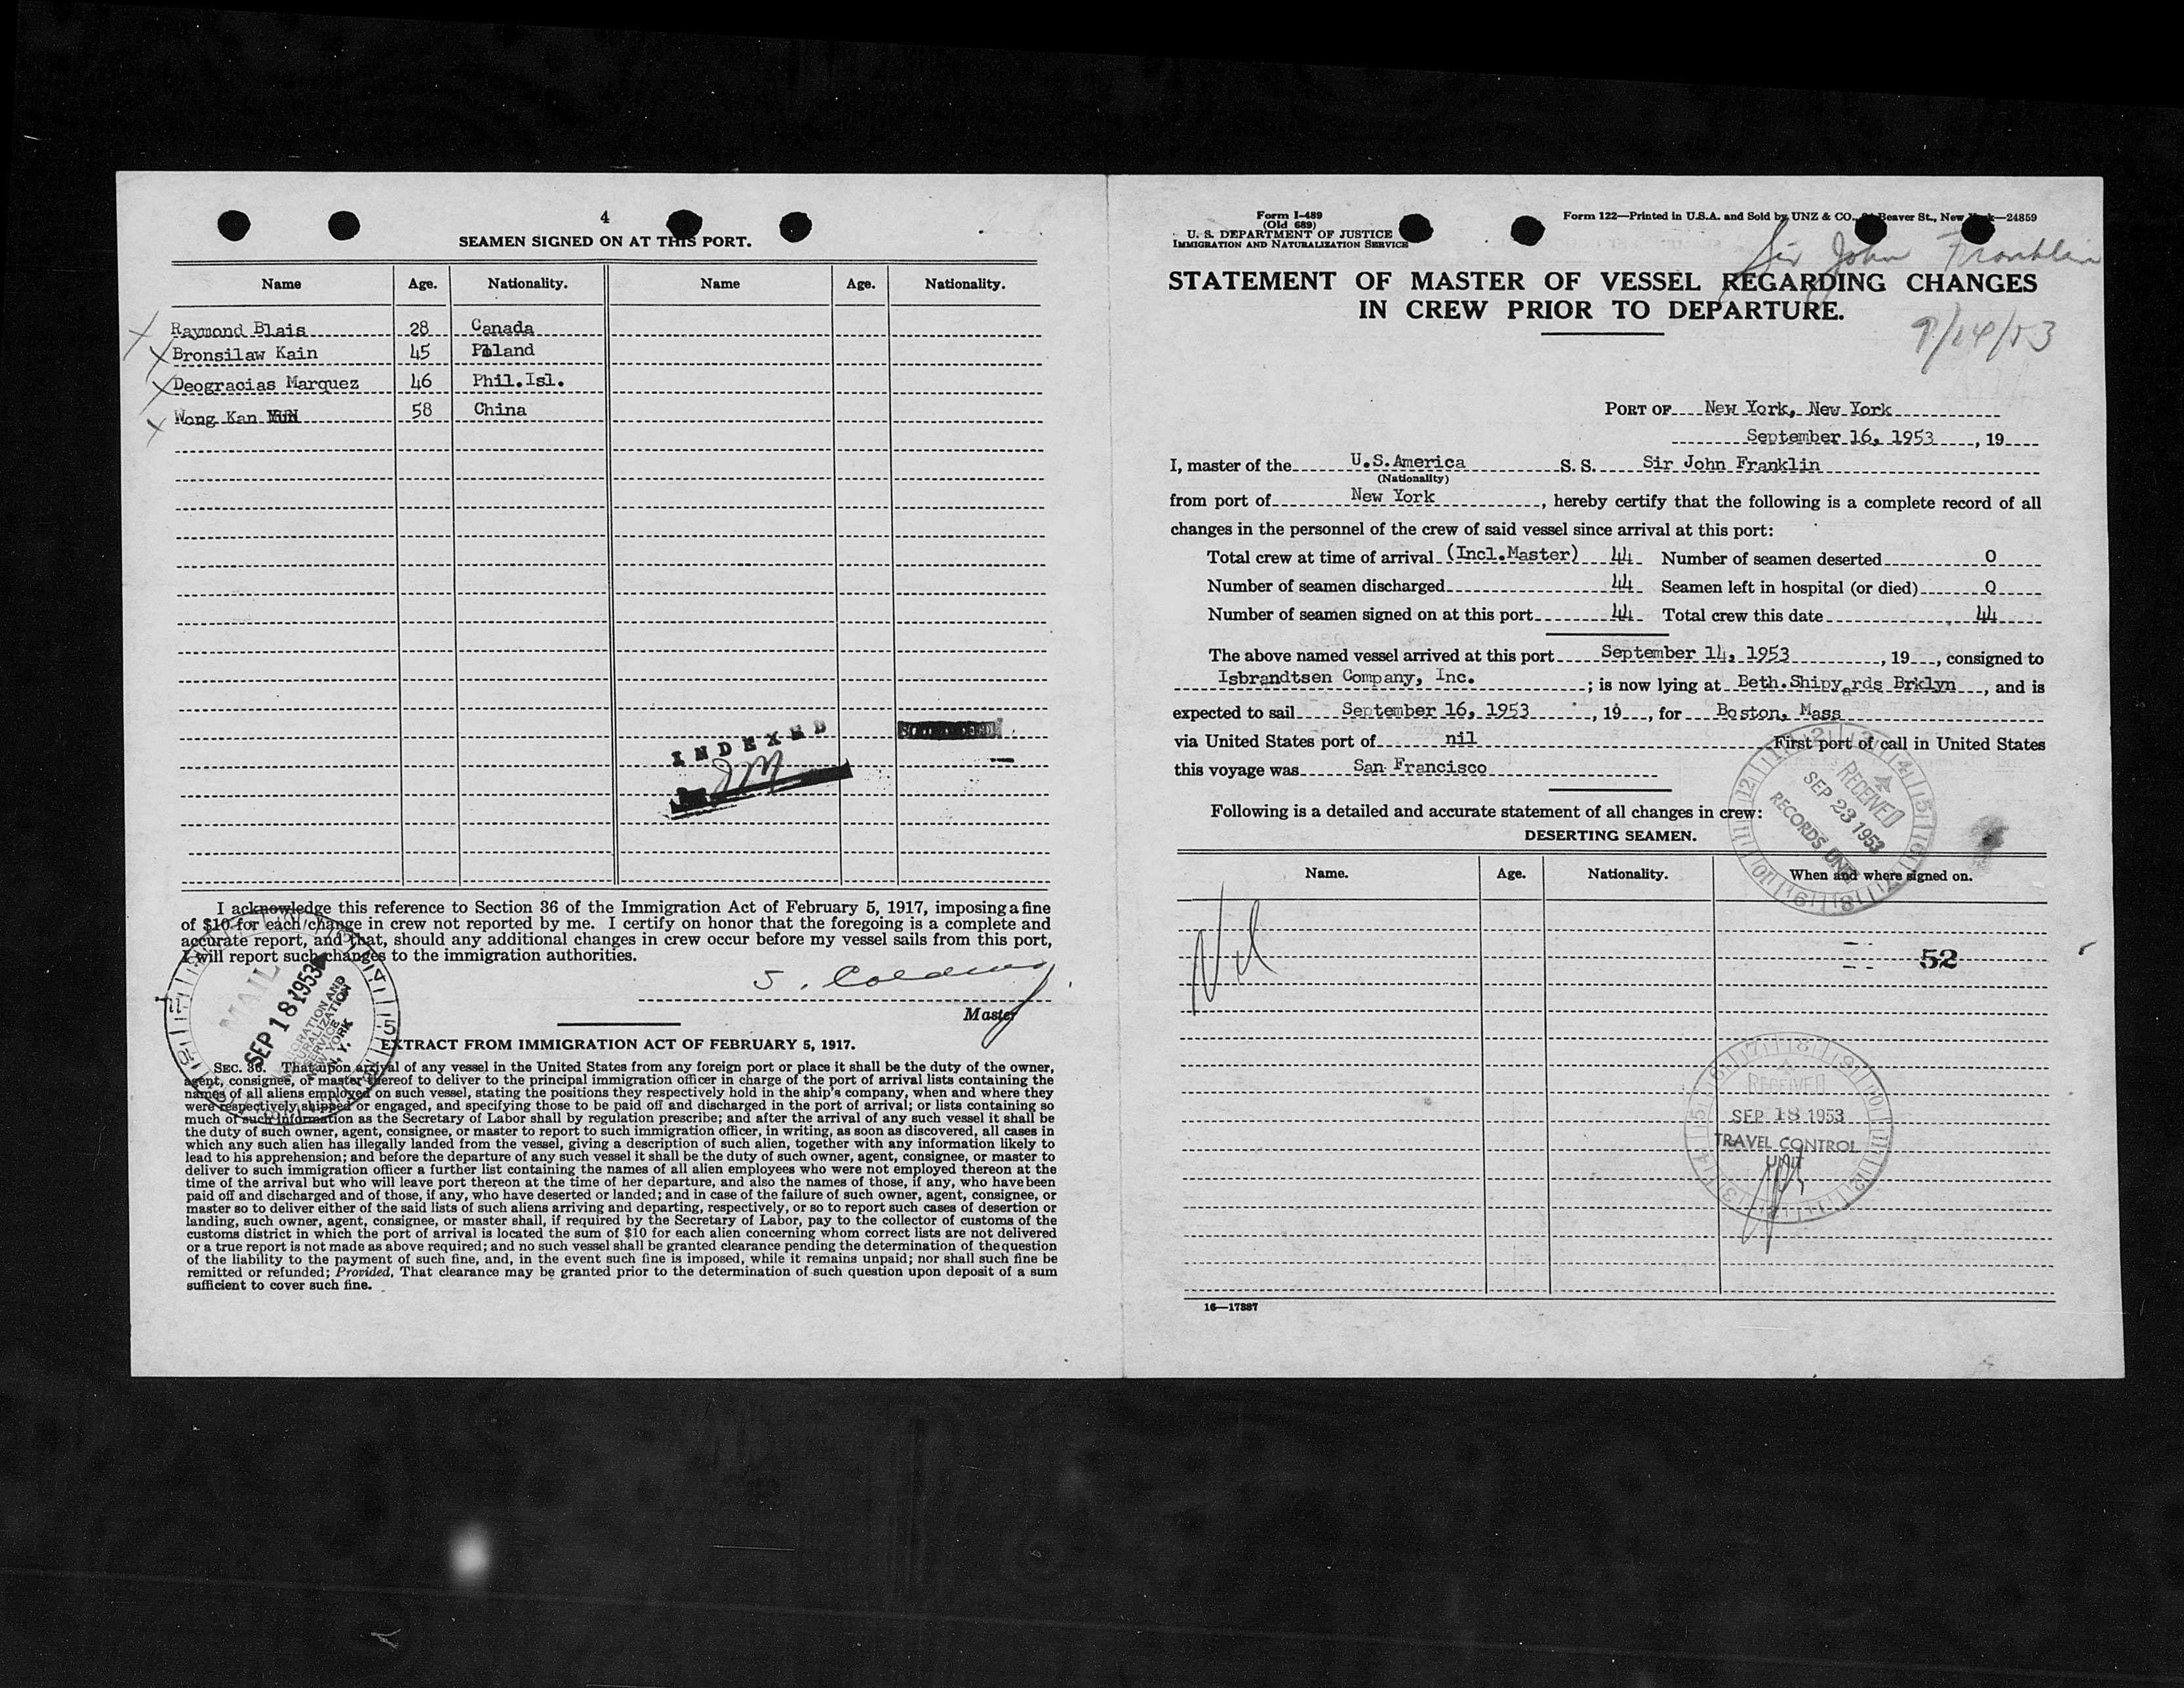 4
SEAMEN SIGNED ON AT THIS PORT.
Name Age. Nationality. Name Age. Nationality.
Raymond Blais 28 Canada
Bronsilaw Kain 45 Poland
Deogracias Marquez 46 Phil.Isl.
Wong Kan 58 China
INDEXED
I acknowledge this reference to Section 36 of the Immigration Act of February 5, 1917, imposing a fine
of $10 for each change in crew not reported by me. I certify on honor that the foregoing is a complete and
accurate report, and that, should any additional changes in crew occur before my vessel sails from this port,
I will report such changes to the immigration authorities.
Master
MAIL
SEP 18 1953
IMMIGRATION AND
NATURALIZATION
SERVICE
NEW YORK
N. Y.
EXTRACT FROM IMMIGRATION ACT OF FEBRUARY 5, 1917.
SEC. 36. That upon arrival of any vessel in the United States from any foreign port or place it shall be the duty of the owner,
agent, consignee, or master thereof to deliver to the principal immigration officer in charge of the port of arrival lists containing the
names of all aliens employed on such vessel, stating the positions they respectively hold in the ship's company, when and where they
were respectively shipped or engaged, and specifying those to be paid off and discharged in the port of arrival; or lists containing so
much of such information as the Secretary of Labor shall by regulation prescribe; and after the arrival of any such vessel it shall be
the duty of such owner, agent, consignee, or master to report to such immigration officer, in writing, as soon as discovered, all cases in
which any such alien has illegally landed from the vessel, giving a description of such alien, together with any information likely to
lead to his apprehension; and before the departure of any such vessel it shall be the duty of such owner, agent, consignee, or master to
deliver to such immigration officer a further list containing the names of all alien employees who were not employed thereon at the
time of the arrival but who will leave port thereon at the time of her departure, and also the names of those, if any, who have been
paid off and discharged and of those, if any, who have deserted or landed; and in case of the failure of such owner, agent, consignee, or
master so to deliver either of the said lists of such aliens arriving and departing, respectively, or so to report such cases of desertion or
landing, such owner, agent, consignee, or master shall, if required by the Secretary of Labor, pay to the collector of customs of the
customs district in which the port of arrival is located the sum of $10 for each alien concerning whom correct lists are not delivered
or a true report is not made as above required; and no such vessel shall be granted clearance pending the determination of the question
of the liability to the payment of such fine, and, in the event such fine is imposed, while it remains unpaid; nor shall such fine be
remitted or refunded; Provided, That clearance may be granted prior to the determination of such question upon deposit of a sum
sufficient to cover such fine.
Form I-489
(Old 689)
U. S. DEPARTMENT OF JUSTICE
IMMIGRATION AND NATURALIZATION SERVICE
Form 122—Printed in U.S.A. and Sold by UNZ & CO., Beaver St., New York—24859
Sir John Franklin
STATEMENT OF MASTER OF VESSEL REGARDING CHANGES
IN CREW PRIOR TO DEPARTURE.
9/14/53
PORT OF New York, New York
September 16, 1953, 19
I, master of the U.S.America S. S. Sir John Franklin
(Nationality)
from port of New York, hereby certify that the following is a complete record of all
changes in the personnel of the crew of said vessel since arrival at this port:
Total crew at time of arrival (Incl.Master) 44 Number of seamen deserted 0
Number of seamen discharged 44 Seamen left in hospital (or died) 0
Number of seamen signed on at this port 44 Total crew this date 44
The above named vessel arrived at this port September 14, 1953, 19, consigned to
Isbrandtsen Company, Inc.; is now lying at Beth.Shipyards Brklyn, and is
expected to sail September 16, 1953, 19, for Boston, Mass
via United States port of nil First port of call in United States
this voyage was San Francisco
RECEIVED
SEP 23 1953
RECORDS UNIT
Following is a detailed and accurate statement of all changes in crew:
DESERTING SEAMEN.
Name. Age. Nationality. When and where signed on.
Nil
52
RECEIVED
SEP 18 1953
TRAVEL CONTROL
UNIT
16—17887